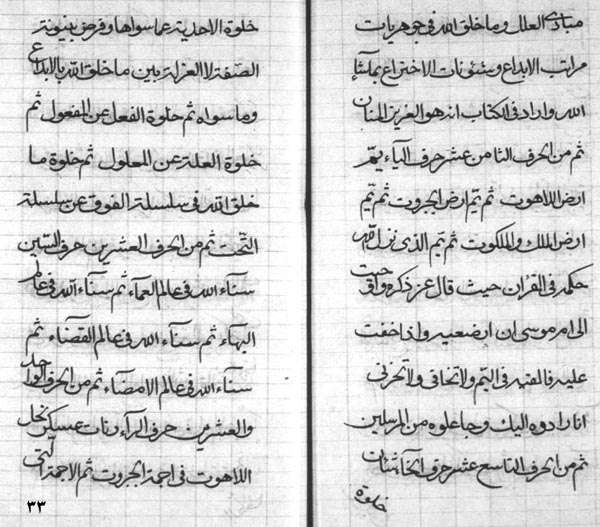 مبادی العلل وما خلق الله فی جوهریات
مراتب الابداع وشئونات الاختراع بماشاء
الله واراد فی الکتاب انه هو العزیز المنان
ثم من الحرف الثامن عشر حرف الیاء یم
ارض اللاهوت ثم یم ارض الجبروت ثم یم
ارض الملک والملکوت ثم یم الذی نزل الله
حکمه فی القران حیث قال عز ذکره واوحیت
الی ام موسی ان ارضعیه واذا خفت
علیه فالقیه فی الیم ولا تخافی ولا تحزنی
انا رادوه الیک وجاعلوه من المرسلین
ثم من الحرف التاسع عشر حرف الخاء
خلوة
خلوة الاحدیة عما سواها وفرض بینونة
الصفة لا العزلة بین ما خلق الله بالابداع
وما سواه ثم خلوة الفعل عن المفعول ثم
خلوة العلة عن المعلول ثم خلوة ما
خلق الله فی سلسلة الفوق عن سلسلة
التحت ثم من الحرف العشرین حرف السین
سناء الله فی عالم العماء ثم سناء الله فی عالم
البهاء ثم سناء الله فی عالم القضاء ثم
سناء الله فی عالم الامضاء ثم من الحرف الواحد
والعشرین حرف الراء رنات عسکر نحل
اللاهوت فی اجمة الجبروت ثم الاجمة التی
٣٣